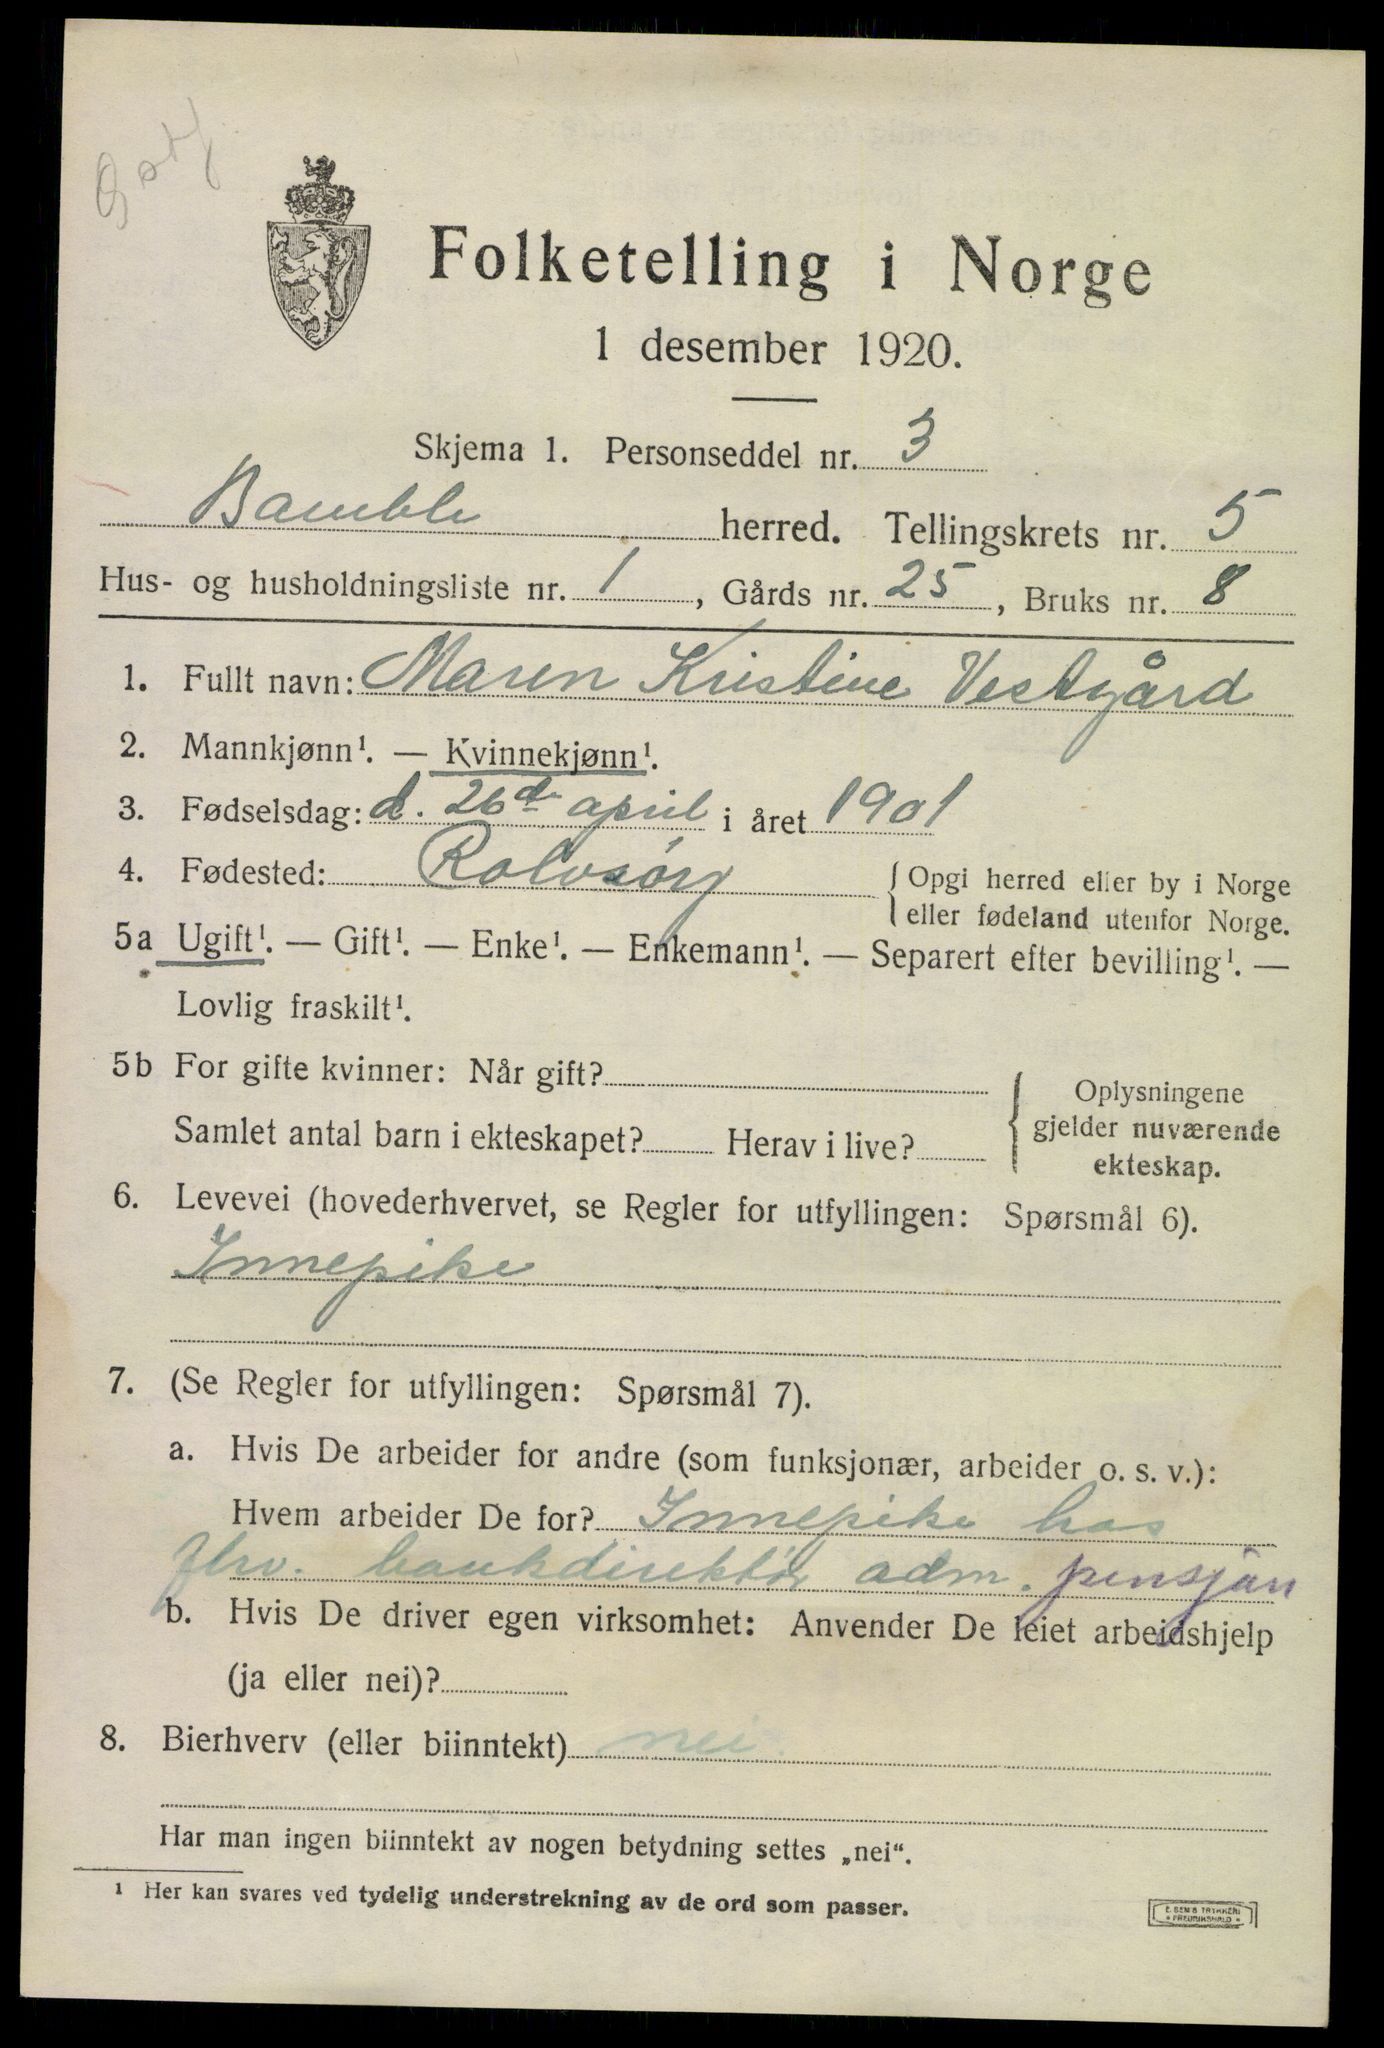 Østf.
Folketelling i Norge
1 desember 1920.
Skjema 1. Personseddel nr. 3
Bamble herred. Tellingskrets nr. 5
Hus- og husholdningsliste nr. 1, Gårds nr. 25, Bruks nr. 8
1. Fullt navn: Maren Kristine Vestgård
2. Mannkjønn¹. — Kvinnekjønn¹.
3. Fødselsdag: d. 26de april i året 1901
4. Fødested: Rolvsøy {Opgi herred eller by i Norge
eller fødeland utenfor Norge.
5a Ugift¹. — Gift¹. — Enke¹. — Enkemann¹. — Separert efter bevilling¹. —
Lovlig fraskilt¹.
5b For gifte kvinner: Når gift?
Samlet antal barn i ekteskapet? Herav i live?
{Oplysningene
gjelder nuværende
ekteskap.
6. Levevei (hovederhvervet, se Regler for utfyllingen: Spørsmål 6).
Innepike
7. (Se Regler for utfyllingen: Spørsmål 7).
a. Hvis De arbeider for andre (som funksjonær, arbeider o. s. v.):
Hvem arbeider De for? Innepike hos
fhv. bankdirektør adm. pensjon
b. Hvis De driver egen virksomhet: Anvender De leiet arbeidshjelp
(ja eller nei)?
8. Bierhverv (eller biinntekt) nei.
Har man ingen biinntekt av nogen betydning settes „nei“.
¹ Her kan svares ved tydelig understrekning av de ord som passer.
E. SEM'S TRYKKERI
• FREDRIKSHALD •